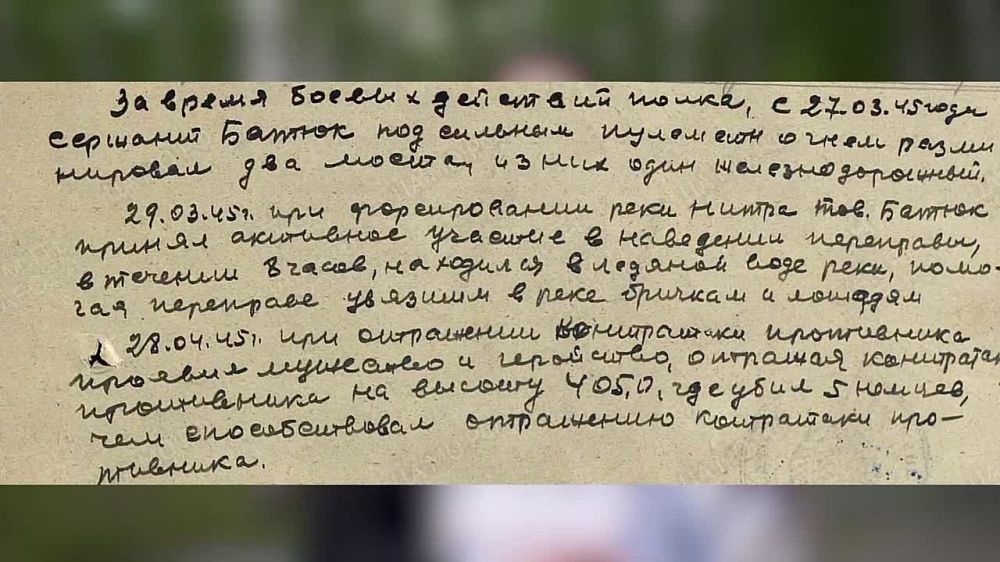 За время боевых действий полка, с 27.03.45 года
сержант Батюк под сильным пулеметн огнем разми
нировал два моста, из них один железнодорожный.
29.03.45г. при форсировании реки Нитра тов. Батюк
принял активное участие в наведении переправы,
в течении 8 часов, находился в ледяной воде реки, помо-
гая переправе увязшим в реке бричкам и лошадям
28.04.45г. при отражении контратаки противника
проявил мужество и геройство, отражая контратак
противника на высоту 405,0, где убил 5 немцев,
чем способствовал отражению контратаки про-
тивника.